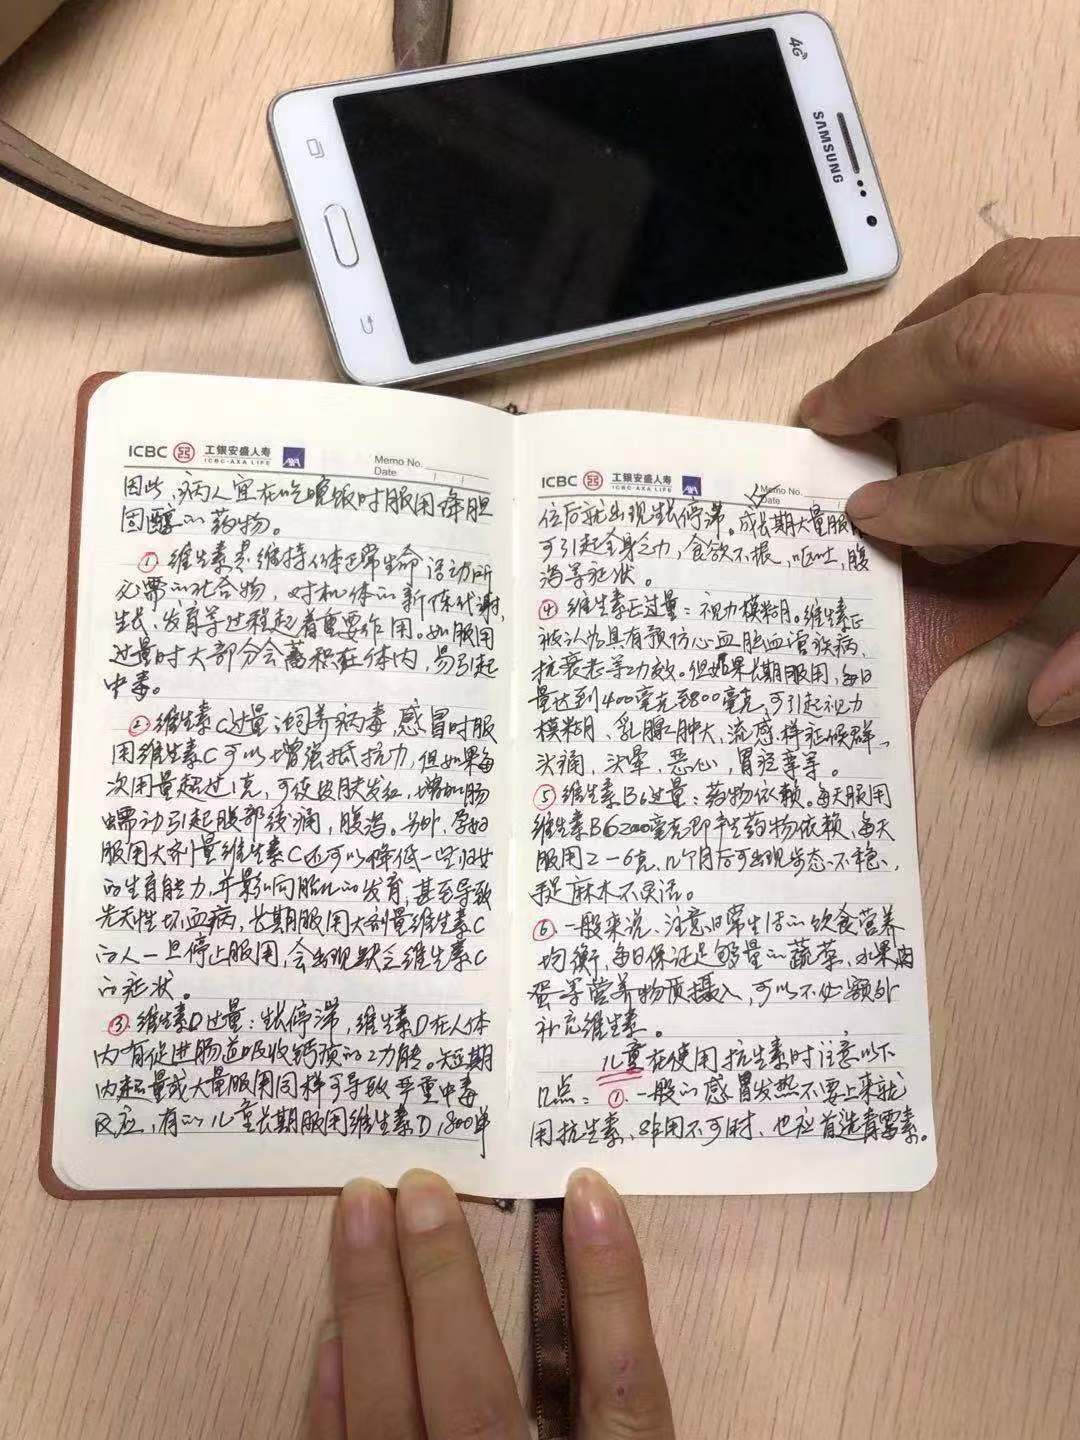 4G
SAMSUNG
ICBC 工银安盛人寿
ICBC-AXA LIFE AXA
Memo No.
Date
因此、病人宜在吃晚饭时服用降胆
固醇的药物。
① 维生素是维持人体正常生命活动所
必需的化合物，对机体的新陈代谢、
生长、发育等过程起着重要作用。如服用
过量时大部分会蓄积在体内，易引起
中毒。
② 维生素C过量：饲养病毒，感冒时服
用维生素C可以增强抵抗力，但如果每
次用量超过1克，可使皮肤发红，增加肠
蠕动引起腹部绞痛，腹泻。另外，孕妇
服用大剂量维生素C还可以降低一些妇女
的生育能力，并影响胎儿的发育，甚至导致
先天性坏血病，长期服用大剂量维生素C
的人一旦停止服用，会出现缺乏维生素C
的症状。
③ 维生素D过量：生长停滞，维生素D在人体
内有促进肠道吸收钙质的功能。短期
内超量或大量服用同样可导致严重中毒
反应，有的儿童长期服用维生素D，800单
ICBC 工银安盛人寿
ICBC-AXA LIFE AXA
Memo No.
Date
位后就出现生长停滞。成长期大量服用
可引起全身乏力，食欲不振，呕吐，腹
泻等症状。
④ 维生素E过量：视力模糊。维生素E
被认为具有预防心血脑血管疾病、
抗衰老等功效。但如果长期服用，每日
量达到400毫克至800毫克，可引起视力
模糊、乳腺肿大，流感样症候群、
头痛，头晕，恶心，胃痉挛等。
⑤ 维生素B6过量：药物依赖。每天服用
维生素B6200毫克即产生药物依赖、每天
服用2－6克，几个月后可出现步态不稳、
手足麻木不灵活。
⑥、一般来说、注意日常生活的饮食营养
均衡，每日保证足够量的蔬菜、水果肉
蛋等营养物质摄入，可以不必额外
补充维生素。
儿童在使用抗生素时注意以下
几点：①、一般的感冒发热不要上来就
用抗生素、非用不可时、也应首选青霉素。